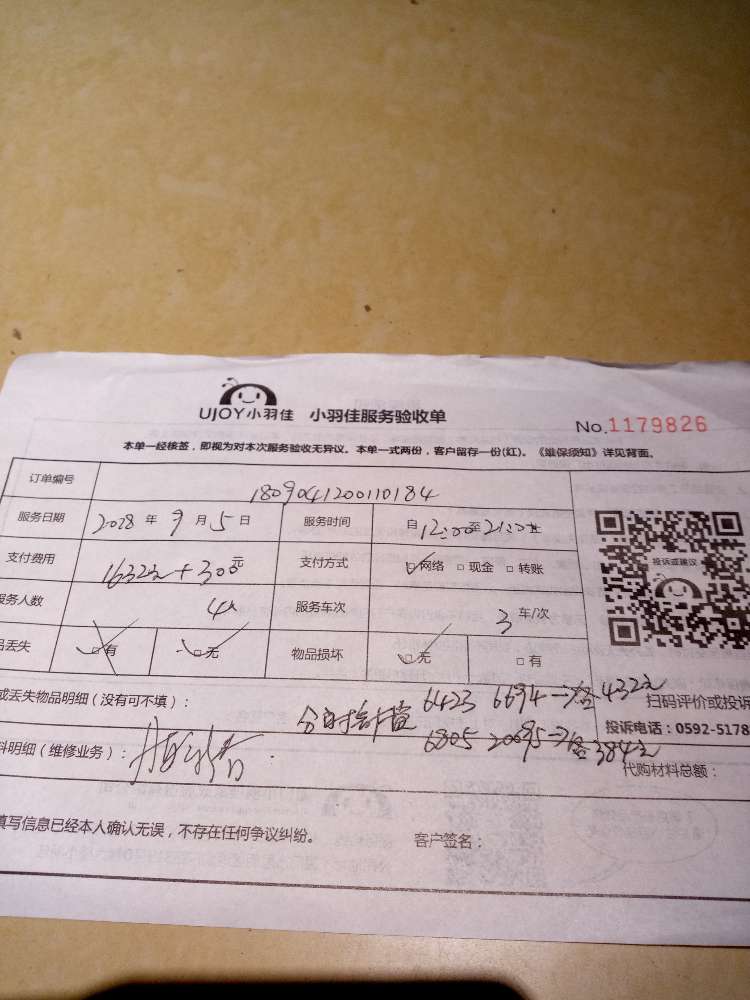 UJOY小羽佳 小羽佳服务验收单
No.1179826
本单一经核签，即视为对本次服务验收无异议。本单一式两份，客户留存一份(红)。《维保须知》详见背面。
订单编号 1809041200110184
服务日期 2018 年 9 月 5 日 服务时间 自 12:00 至 21:00
支付费用 1632元+300元 支付方式 ☑网络 □现金 □转账
服务人数 4人 服务车次 3 车/次
品丢失 □有 □无 物品损坏 □无 □有
投诉或建议
或丢失物品明细（没有可不填）： 6423 6694→ 432元
扫码评价或投诉
6805 20695→ 384元
投诉电话：0592-5178
料明细（维修业务）：
代购材料总额：
填写信息已经本人确认无误，不存在任何争议纠纷。 客户签名：